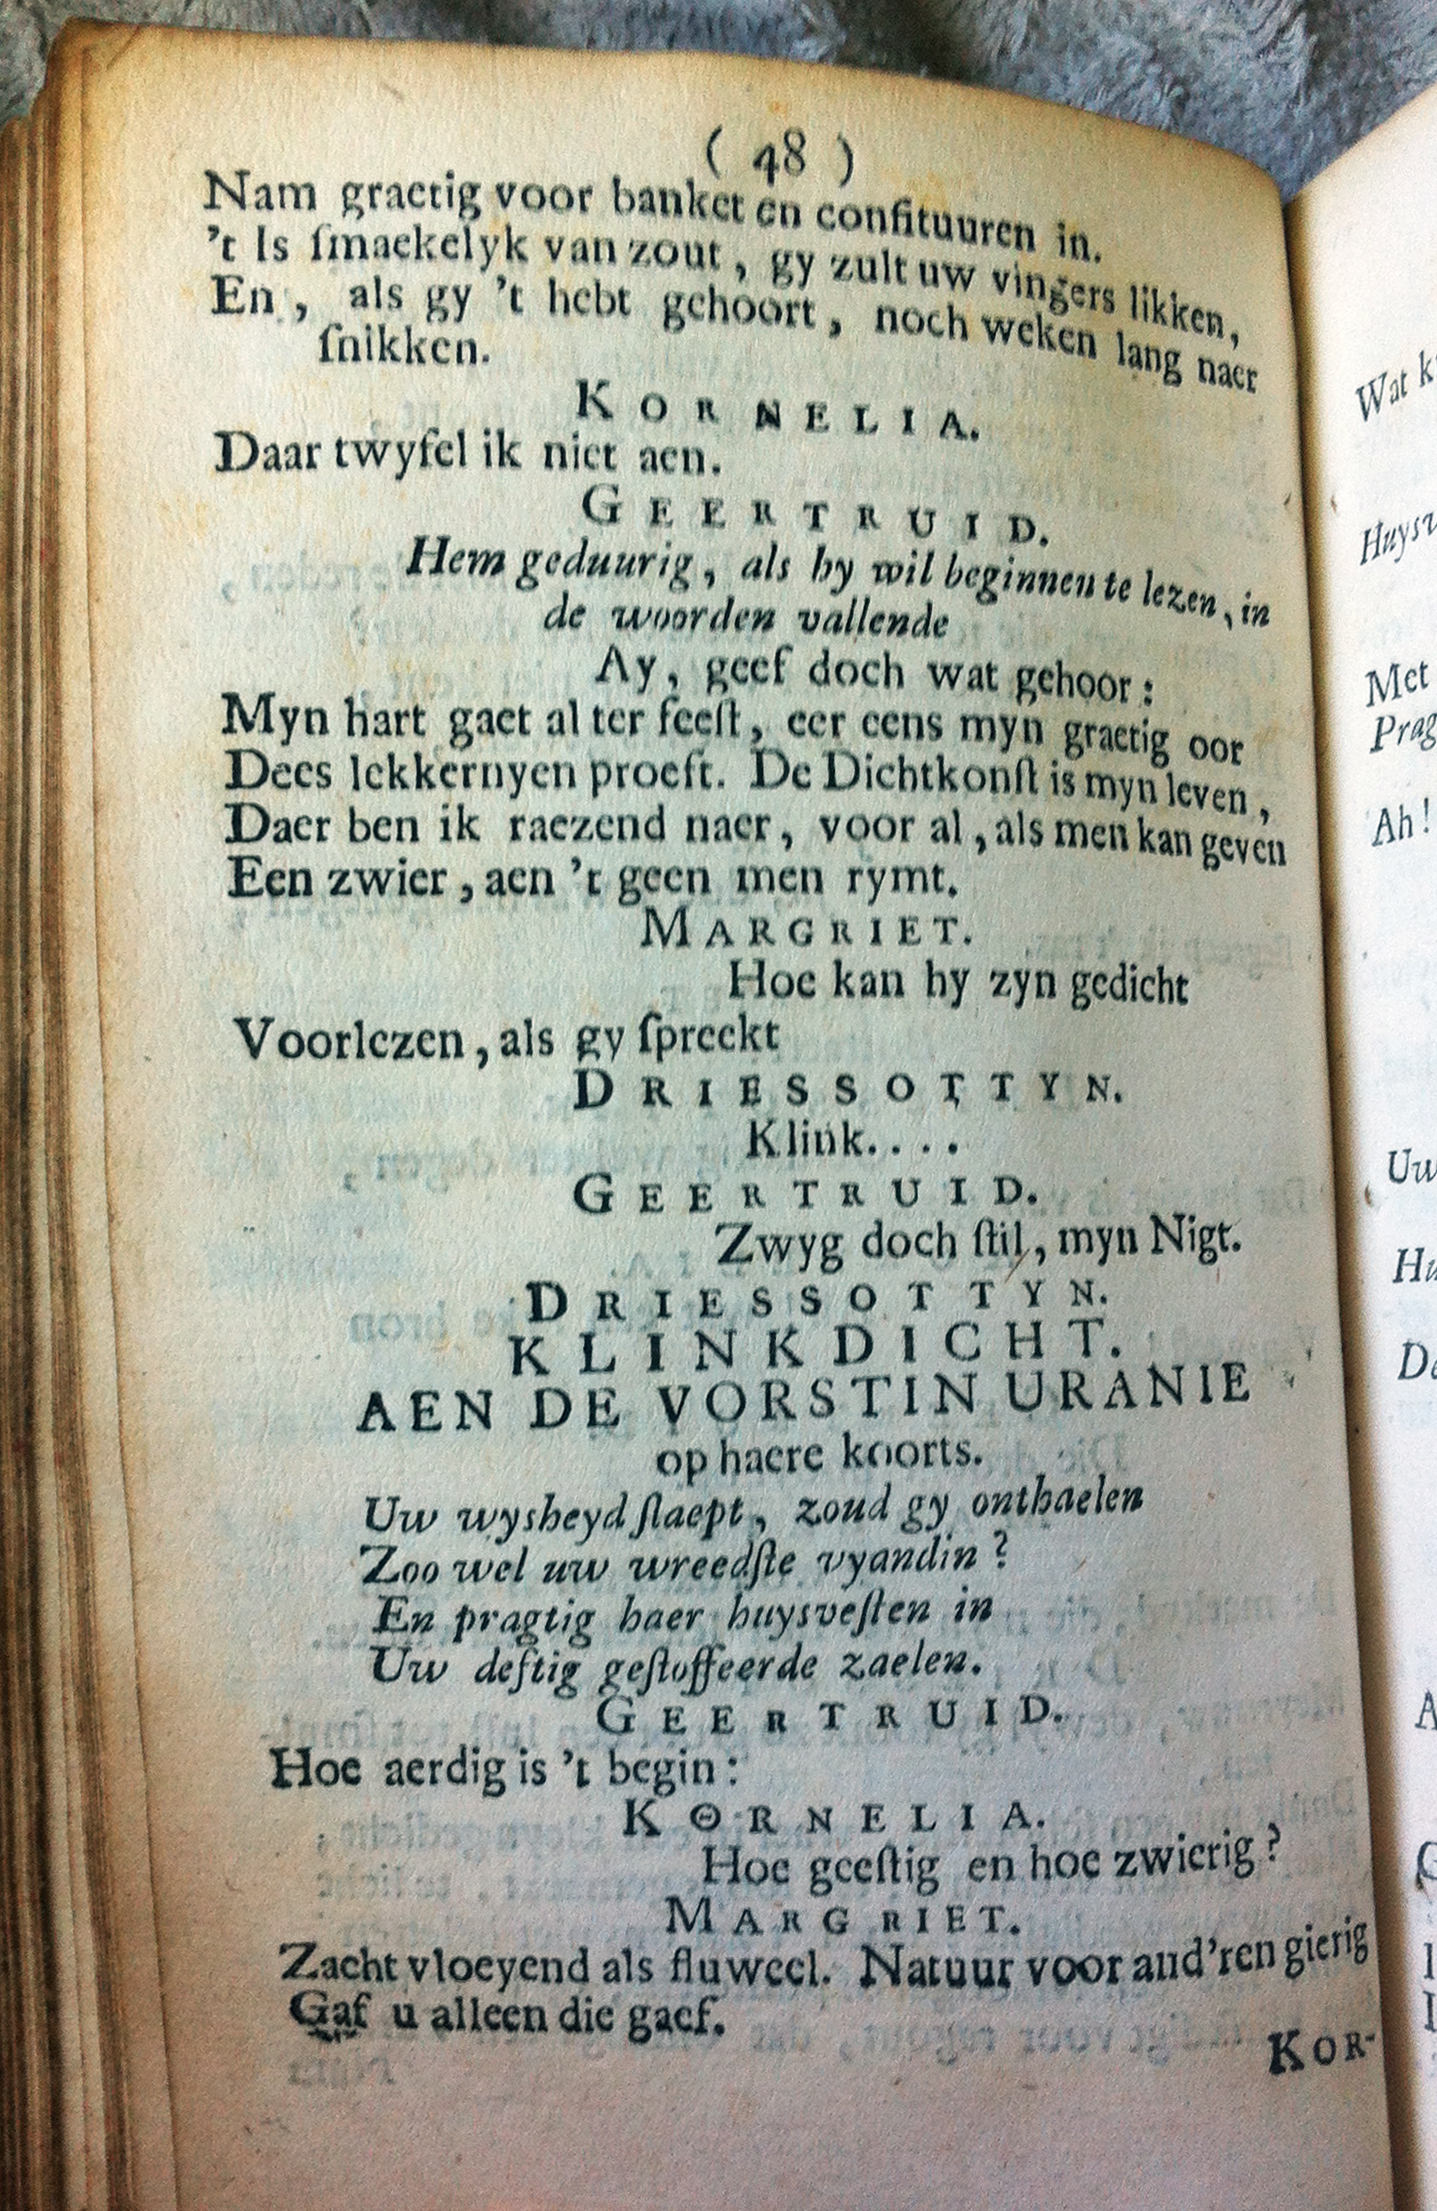 ( 48 )
Nam graetig voor banket en confituuren in.
't Is ſmaekelyk van zout, gy zult uw vingers likken,
En, als gy 't hebt gehoort, noch weken lang naer
ſnikken.
KORNELIA.
Daar twyfel ik niet aen.
GEERTRUID.
Hem geduurig, als hy wil beginnen te lezen, in
de woorden vallende
Ay, geef doch wat gehoor:
Myn hart gaet al ter feeſt, eer eens myn graetig oor
Dees lekkernyen proeft. De Dichtkonſt is myn leven,
Daer ben ik raezend naer, voor al, als men kan geven
Een zwier, aen 't geen men rymt.
MARGRIET.
Hoe kan hy zyn gedicht
Voorlezen, als gy ſpreekt
DRIESSOTTYN.
Klink....
GEERTRUID.
Zwyg doch ſtil, myn Nigt.
DRIESSOTTYN.
KLINKDICHT.
AEN DE VORSTIN URANIE
op haere koorts.
Uw wysheyd ſlaept, zoud gy onthaelen
Zoo wel uw wreedſte vyandin?
En pragtig haer huysveſten in
Uw deftig geſtoffeerde zaelen.
GEERTRUID.
Hoe aerdig is 't begin:
KORNELIA.
Hoe geeſtig en hoe zwierig?
MARGRIET.
Zacht vloeyend als fluweel. Natuur voor and'ren gierig
Gaf u alleen die gaef.
KOR-
Wat
Met
Ah!
Uw